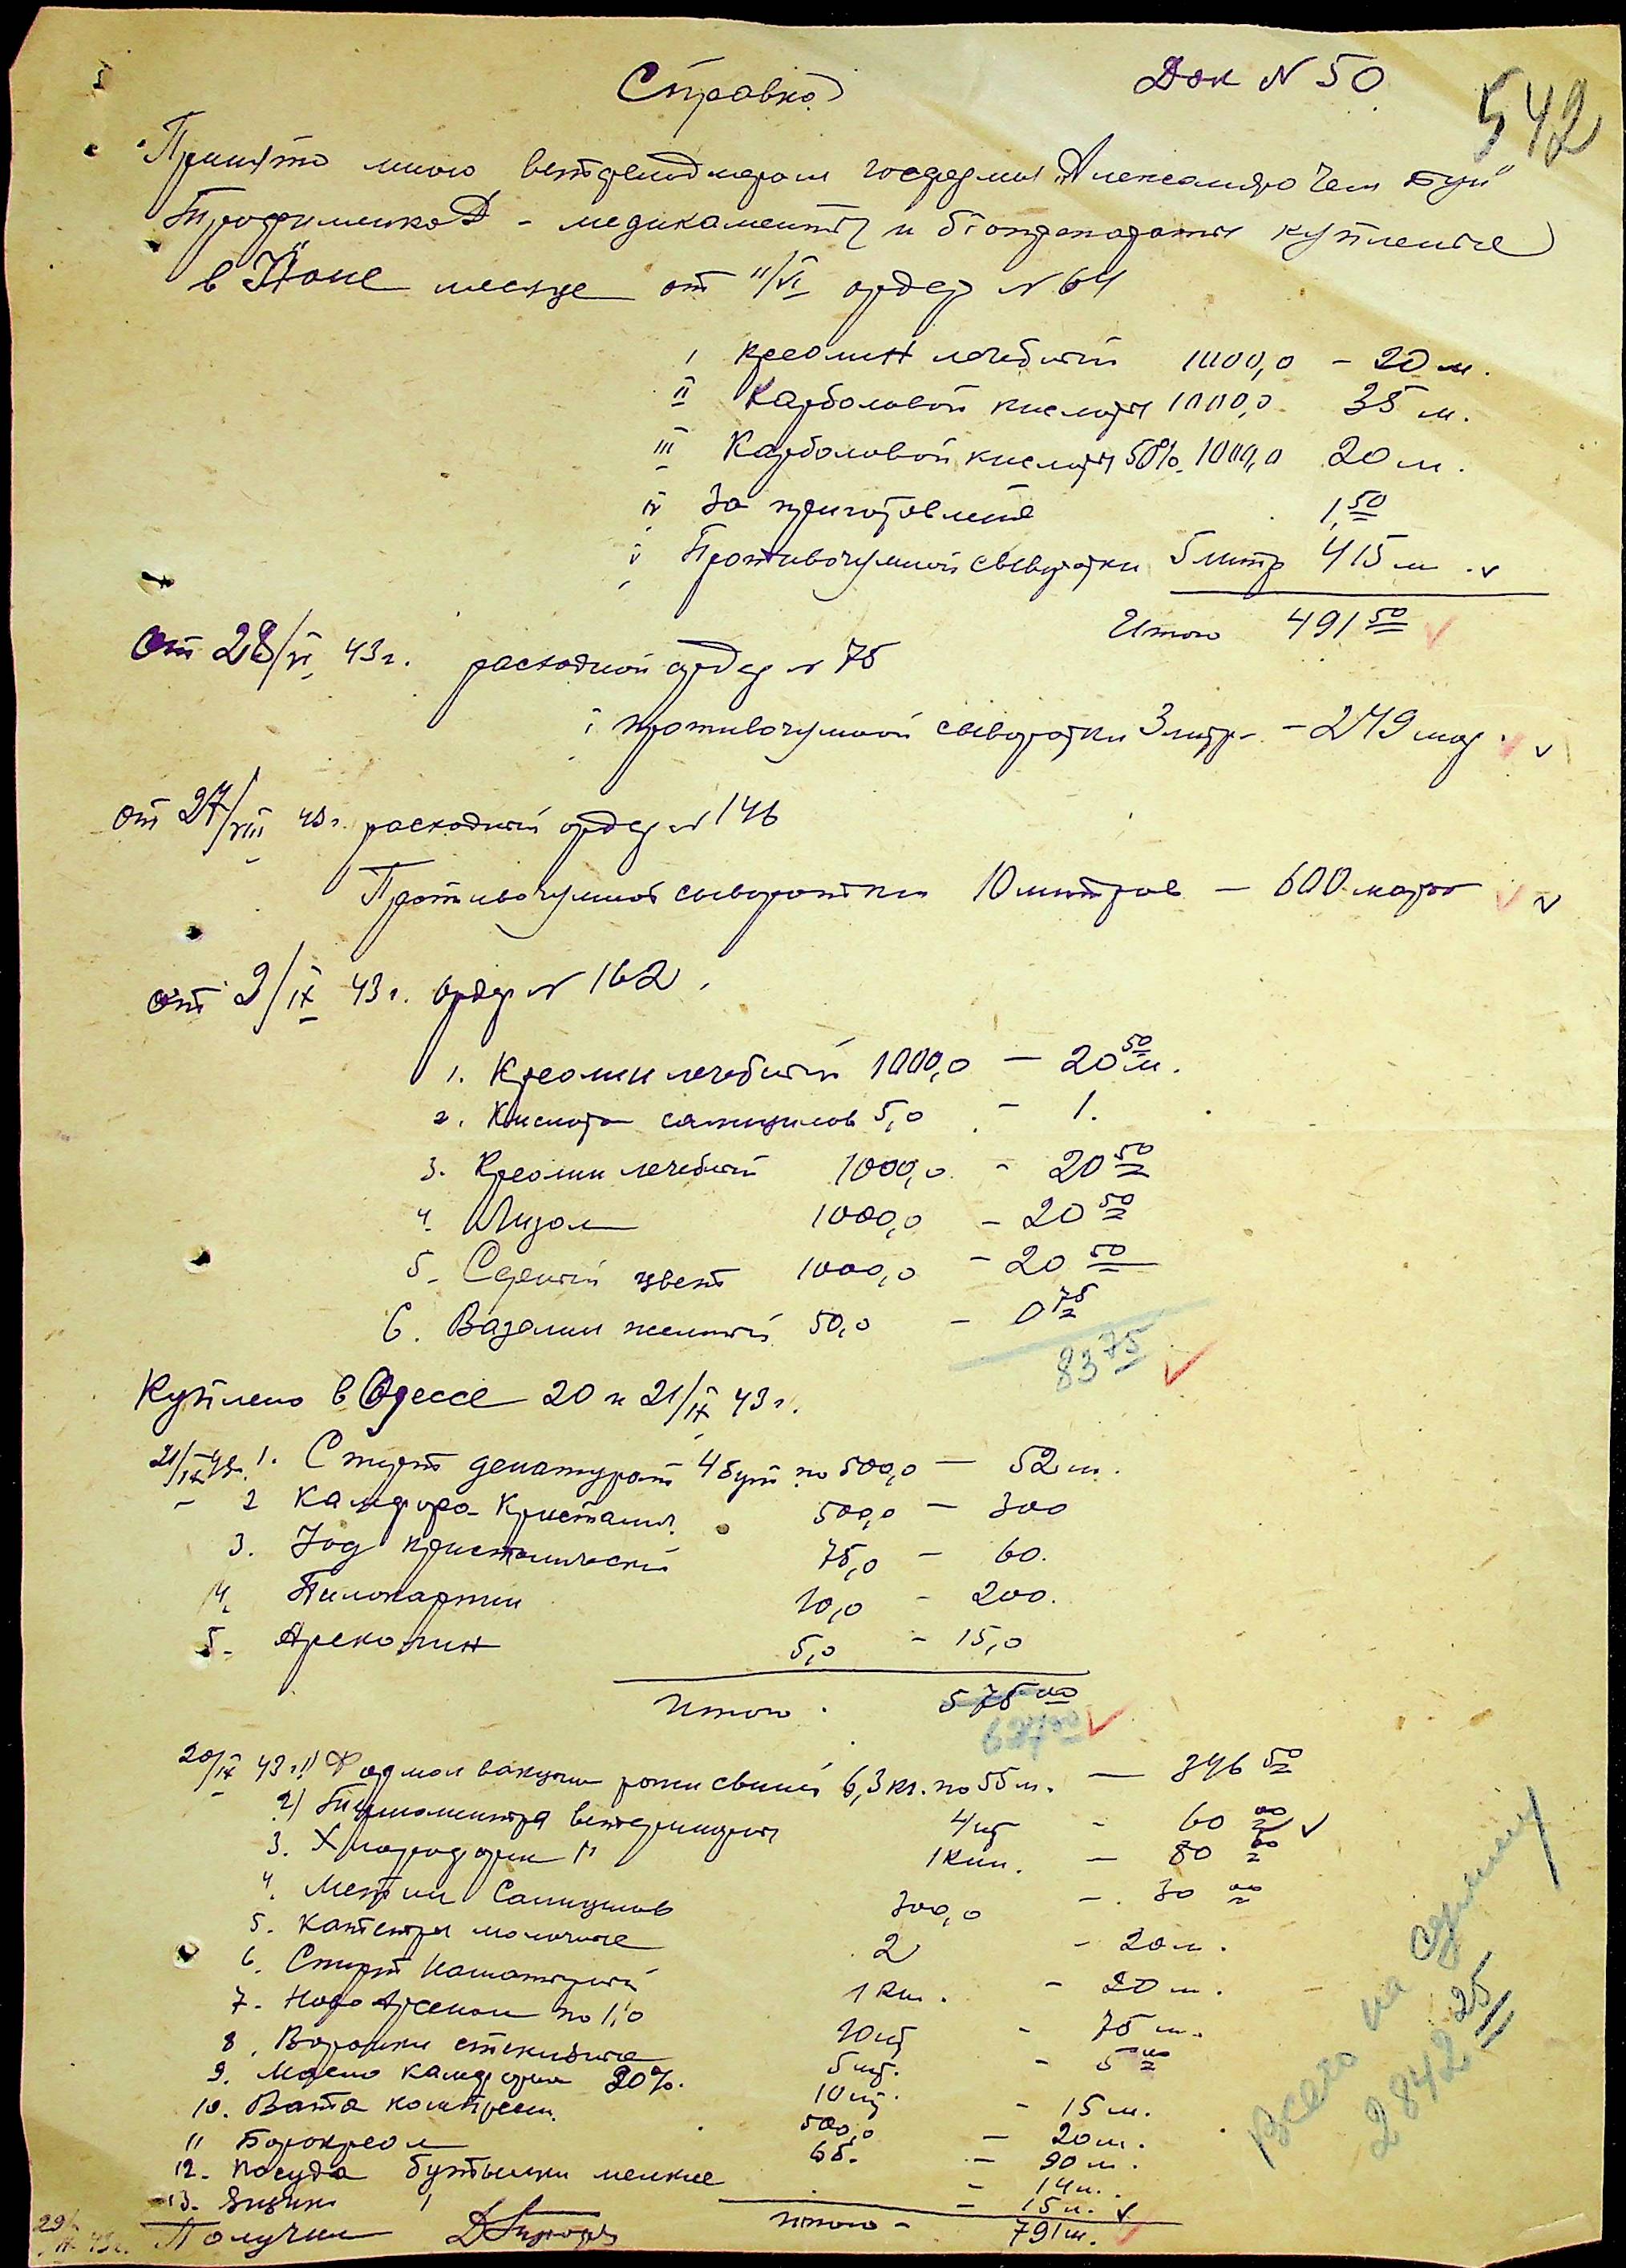 Справка Док N 50
542
Принято мною ветфельдшером госфермы „Александро Чем Буй“
Трофименко Д - медикаменты и биопрепараты купленые
в Июне месяце от 11/VI ордер N 64
I Креолин лечебный 1000,0 - 20 м.
II Карболовой кислоты 1000,0 35 м.
III Карболовой кислоты 50% 1000,0 20 м.
IV За приготовление 1,50
V Противочумной сыворотки 5 литр 415 м
Итого 491 50
От 28/VI 43 г. расходной ордер N 75
I противочумной сыворотки 3 литр - 249 мар
от 27/VIII 43 г. расходный ордер N 146
Противочумной сыворотки 10 литров - 600 марок
от 2/IX 43 г. ордер N 162.
1. Креолин лечебный 1000,0 - 20 50 м.
2. Кислота салицилов 5,0 - 1.
3. Креолин лечебный 1000,0 - 20 50
4. Лизол 1000,0 - 20 50
5. Серный цвет 1000,0 - 20 50
6. Вазелин желтый 50,0 - 0 75
83 75
Куплено в Одессе 20 и 21/IX 43 г.
21/IX 43. 1. Спирт денатурат 4 бут по 500,0 - 52 м.
2 Камфора Кристалич. 500,0 - 300
3. Иод кристалический 75,0 - 60.
4. Пилокарпин 10,0 - 200.
5. Ареколин 5,0 - 15,0
Итого 575 00
627 00
20/IX 43 г. 1) Формол вакцин рожи свиней 6,3 кг. по 55 м. - 346 50
2) Термометра ветеринарн 4 шт - 60 00
3. Хлороформ 1 кил. - 80 00
4. Метил Салицилов 300,0 - 30 00
5. Катетры молочные 2 - 20 м.
6. Спирт Нашатырный 1 кил. - 20 м.
7. Ново Арсенол по 1,0 10 шт - 75 м.
8. Воронки стеклянные 5 шт. - 5 00
9. Масло камфорн 20%. 10 шт. - 15 м.
10. Вата компресн. 500,0 - 20 м.
11 Борокреол 6 б. - 90 м.
12. Посуда бутылки мелкие - 14 м.
13. Ящик 1 - 15 м.
Итого - 791 м.
Получил
Всего на сумму
2842 25